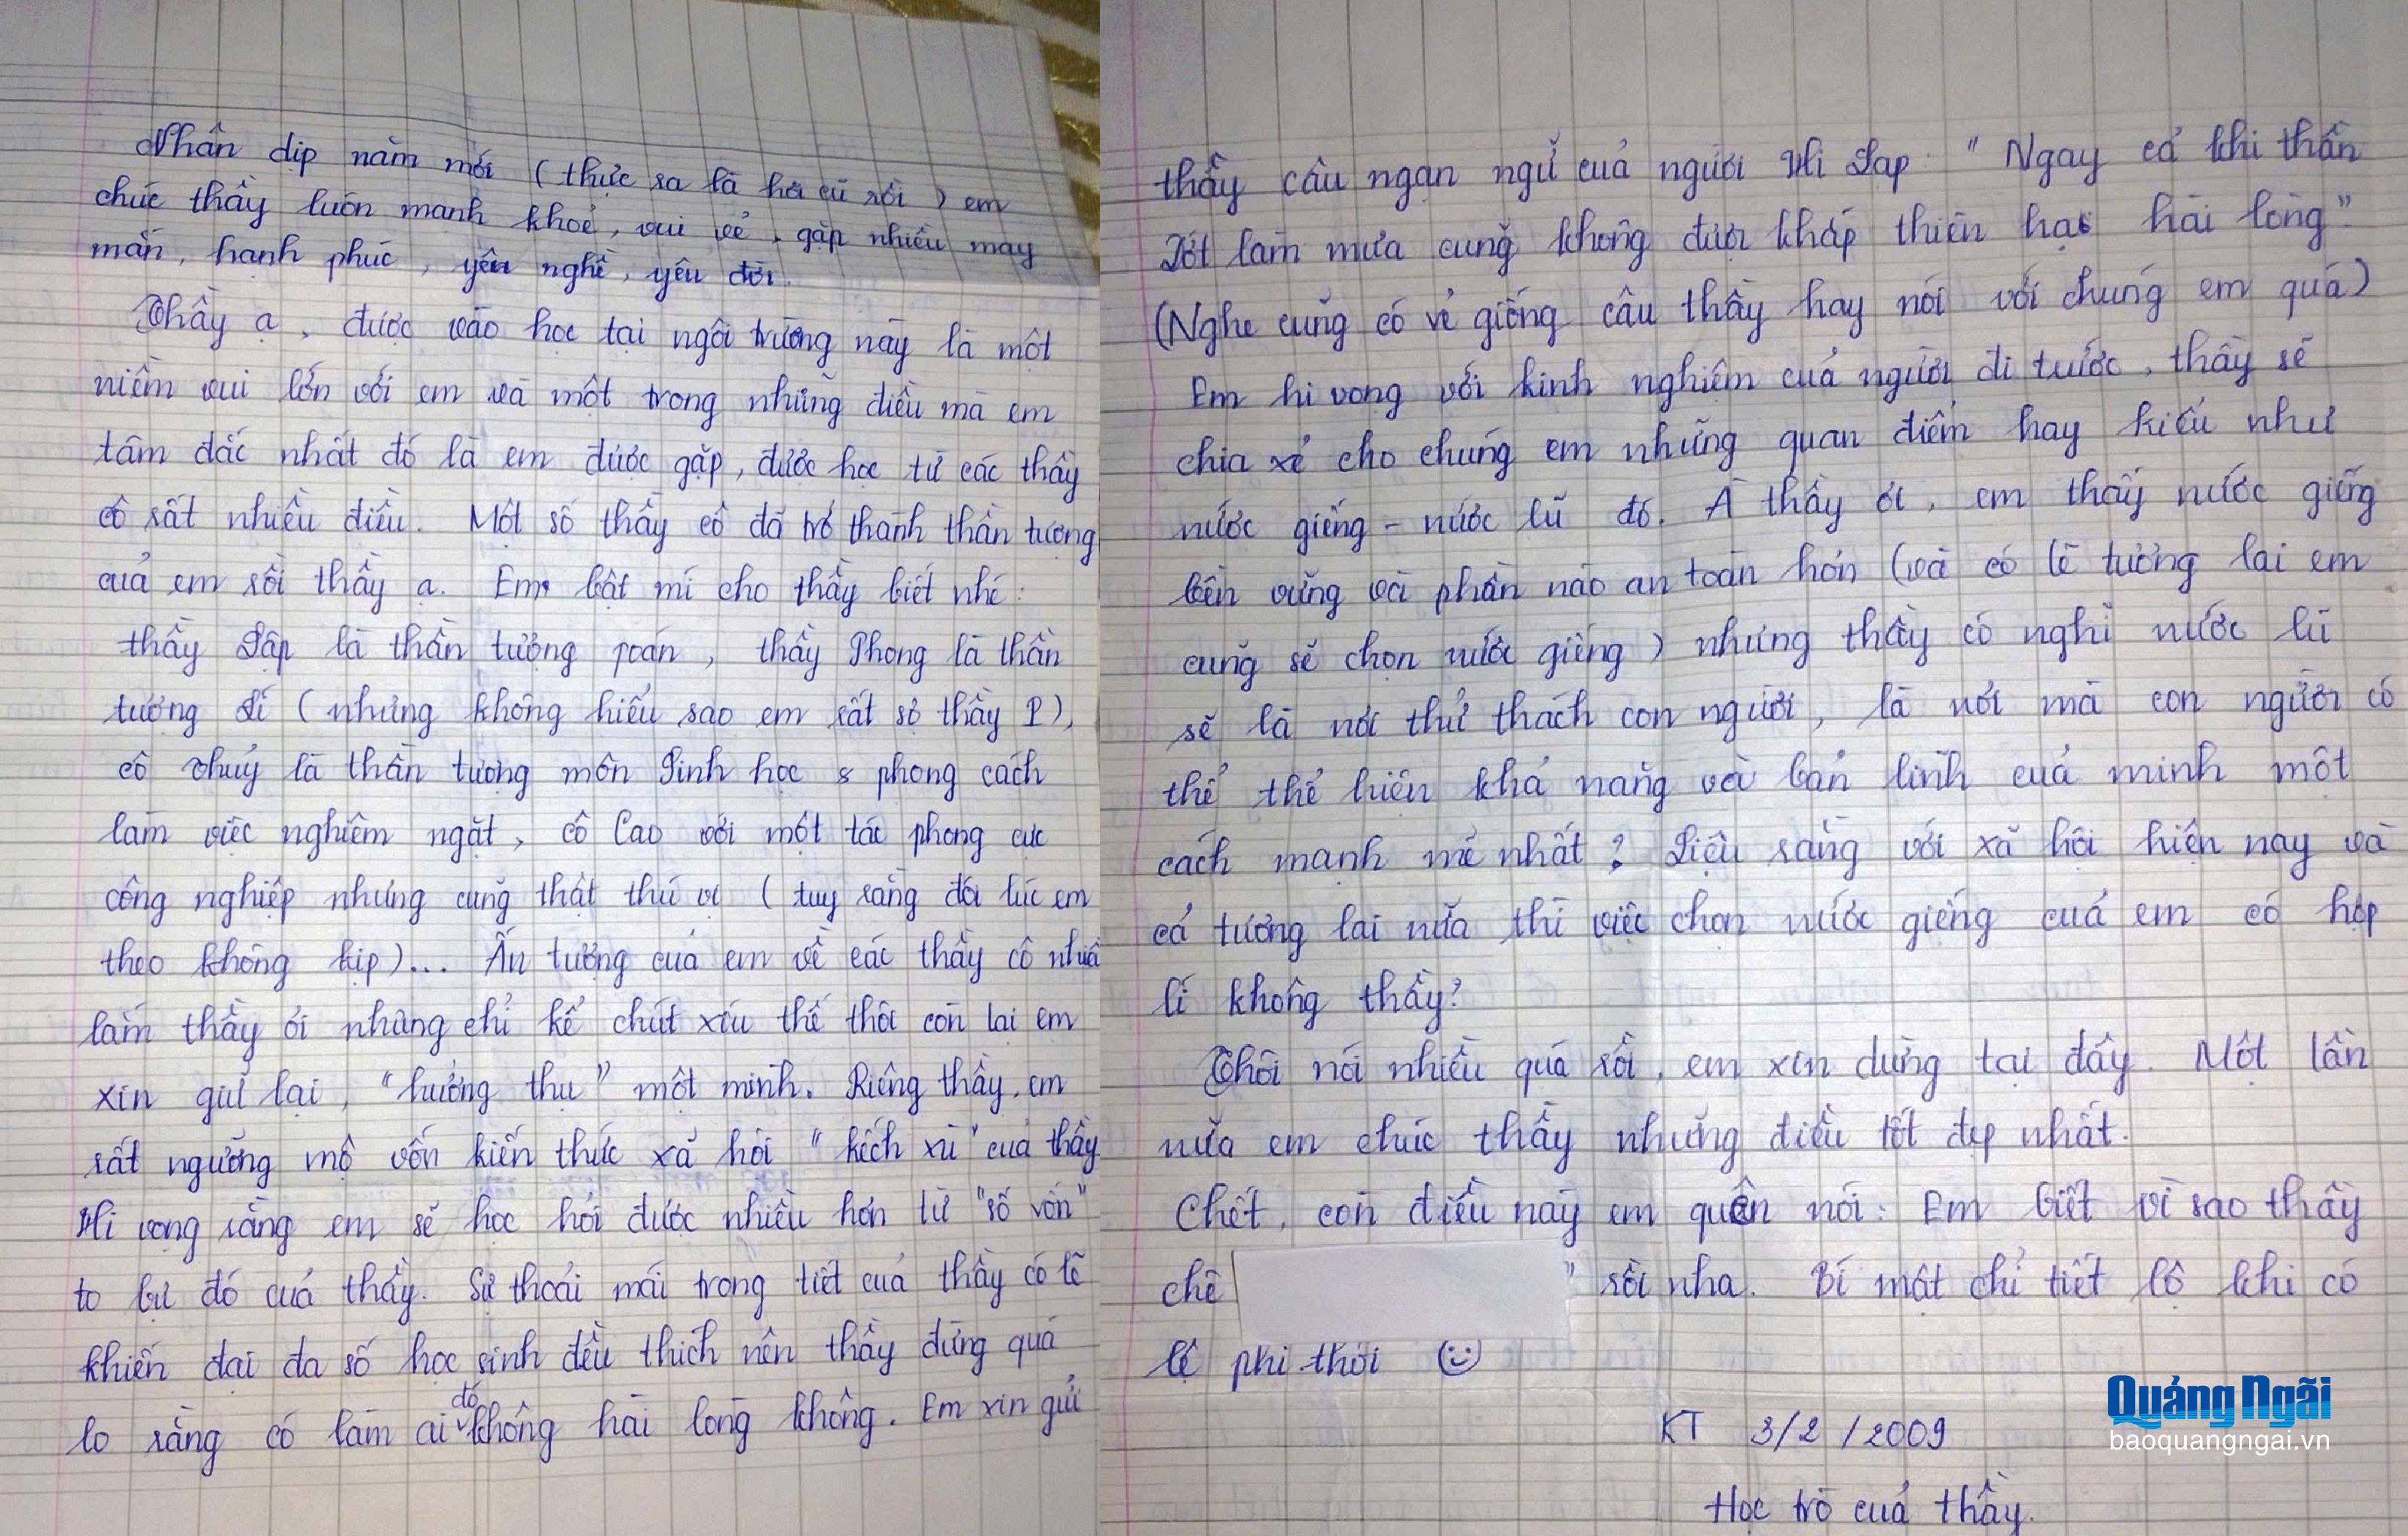 Nhân dịp năm mới (thực ra là hơi cũ rồi) em
chúc thầy luôn mạnh khoẻ, vui vẻ, gặp nhiều may
mắn, hạnh phúc, yêu nghề, yêu đời.
Thầy ạ, được vào học tại ngôi trường này là một
niềm vui lớn với em và một trong những điều mà em
tâm đắc nhất đó là em được gặp, được học từ các thầy
cô rất nhiều điều. Một số thầy cô đã trở thành thần tượng
của em rồi thầy ạ. Em bật mí cho thầy biết nhé:
thầy Lập là thần tượng toán, thầy Phong là thần
tượng lí (nhưng không hiểu sao em rất sợ thầy P),
cô Thuỷ là thần tượng môn Sinh học & phong cách
làm việc nghiêm ngặt, cô Cao với một tác phong cực
công nghiệp nhưng cũng thật thú vị (tuy rằng đôi lúc em
theo không kịp)... Ấn tượng của em về các thầy cô nhiều
lắm thầy ơi nhưng chỉ kể chút xíu thế thôi còn lại em
xin giữ lại, "hưởng thụ" một mình. Riêng thầy, em
rất ngưỡng mộ vốn kiến thức xã hội "kếch xù" của thầy
Hi vọng rằng em sẽ học hỏi được nhiều hơn từ "số vốn"
to bự đó của thầy. Sự thoải mái trong tiết của thầy có lẽ
khiến đại đa số học sinh đều thích nên thầy đừng quá
lo rằng có làm ai đó không hài lòng không. Em xin gửi
thầy câu ngạn ngữ của người Hi Lạp: "Ngay cả khi thần
Dớt làm mưa cũng không đượi khắp thiên hạ hài lòng"
(Nghe cũng có vẻ giống câu thầy hay nói với chúng em quá)
Em hi vọng với kinh nghiệm của người đi trước, thầy sẽ
chia xẻ cho chúng em những quan điểm hay kiểu như
nước giếng - nước lũ đó. À thầy ơi, em thấy nước giếng
bền vững và phần nào an toàn hơn (và có lẽ tương lai em
cũng sẽ chọn nước giếng) nhưng thầy có nghĩ nước lũ
sẽ là nơi thử thách con người, là nơi mà con người có
thể thể hiện khả năng và bản lĩnh của mình một
cách mạnh mẽ nhất? Liệu rằng với xã hội hiện nay và
cả tương lai nữa thì việc chọn nước giếng của em có hợp
lí không thầy?
Thôi nói nhiều quá rồi, em xin dừng tại đây. Một lần
nữa em chúc thầy những điều tốt đẹp nhất.
Chết, còn điều này em quên nói: Em biết vì sao thầy
chê " rồi nha. Bí mật chỉ tiết lộ khi có
lệ phí thôi
KT 3/2/2009
Học trò của thầy.
Quảng Ngãi
baoquangngai.vn